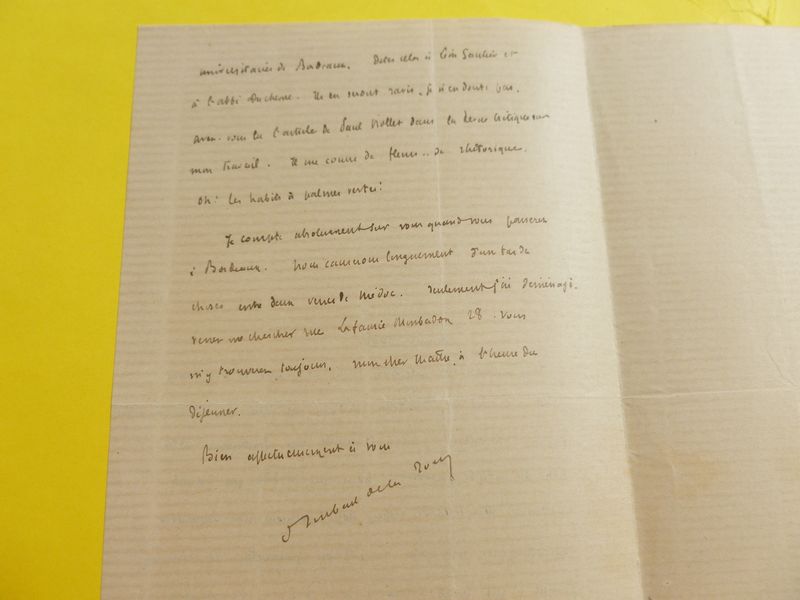 universitaires de Bordeaux. Dites cela à Léon Gautier et
à l'abbé Duchesne. Ils en seront ravis, je n'en doute pas.
avez-vous lu l'article de Paul Viollet dans la Revue critique sur
mon travail. Il me couvre de fleurs.. de rhétorique.
oh! les habits à palmes vertes!
Je compte absolument sur vous quand vous passerez
à Bordeaux. Nous causerons longuement d'un tas de
choses entre deux verres de Médoc. Seulement j'ai déménagé.
venez me chercher rue Lafaurie Monbadon 28. vous
m'y trouverez toujours, mon cher Maître, à l'heure du
déjeuner.
Bien affectueusement à vous
Imbart de la Tour